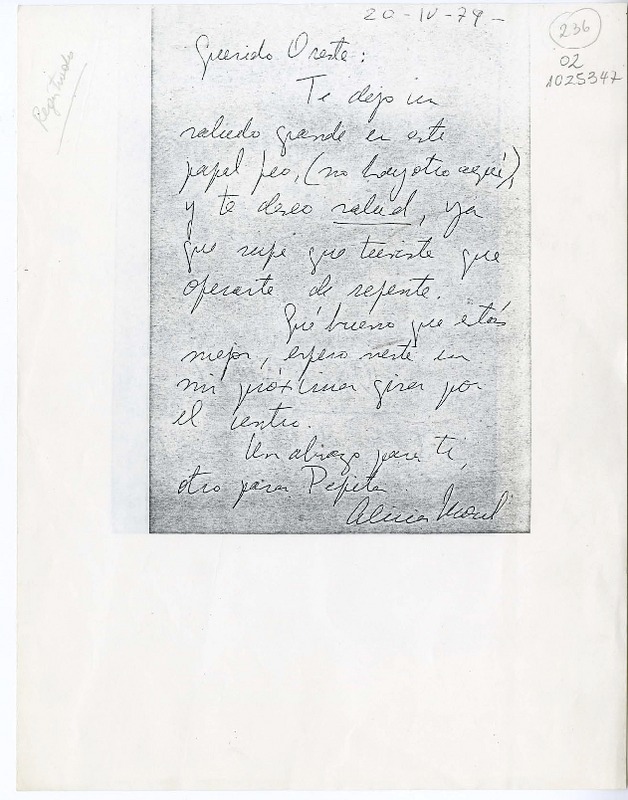 20-IV-79-
236
02
1025347
Registrado
Querido Oreste:
Te dejo un
saludo grande en este
papel feo, (no hay otro aquí),
y te deseo salud, ya
que supe que tuviste que
operarte de repente.
Qué bueno que estás
mejor, espero verte en
mi próxima gira por
el centro.
Un abrazo para ti,
otro para Pepita
Alicia Morel